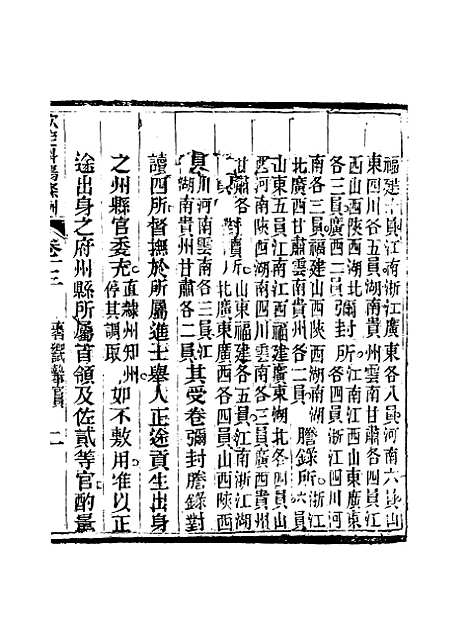 福建十員江南浙江廣東各八員河南六員山
東四川各五員湖南貴州雲南甘肅各四員江
西山西陝西湖北各三員廣西二員彌封所江南江西山東廣東各四員浙江四川河
南各三員福建山西陝西湖南湖
北廣西甘肅雲南貴州各二員謄錄所浙江六員
山東五員江南江西福建廣東湖北各四員山
西河南陝西湖南四川雲南各三員廣西貴州
甘肅各二員對讀所山東福建各五員江南浙江湖
北廣東廣西各四員山西陝西
四川河南雲南各三員江
西湖南貴州甘肅各二員其受卷彌封謄錄對
讀四所督撫於所屬進士舉人正途貢生出身
之州縣官委充直隸州知州停其調取如不敷用准以正
途出身之府州縣所屬首領及佐貳等官酌量
欽定科場條例
卷十三
鄉試執事官員
二